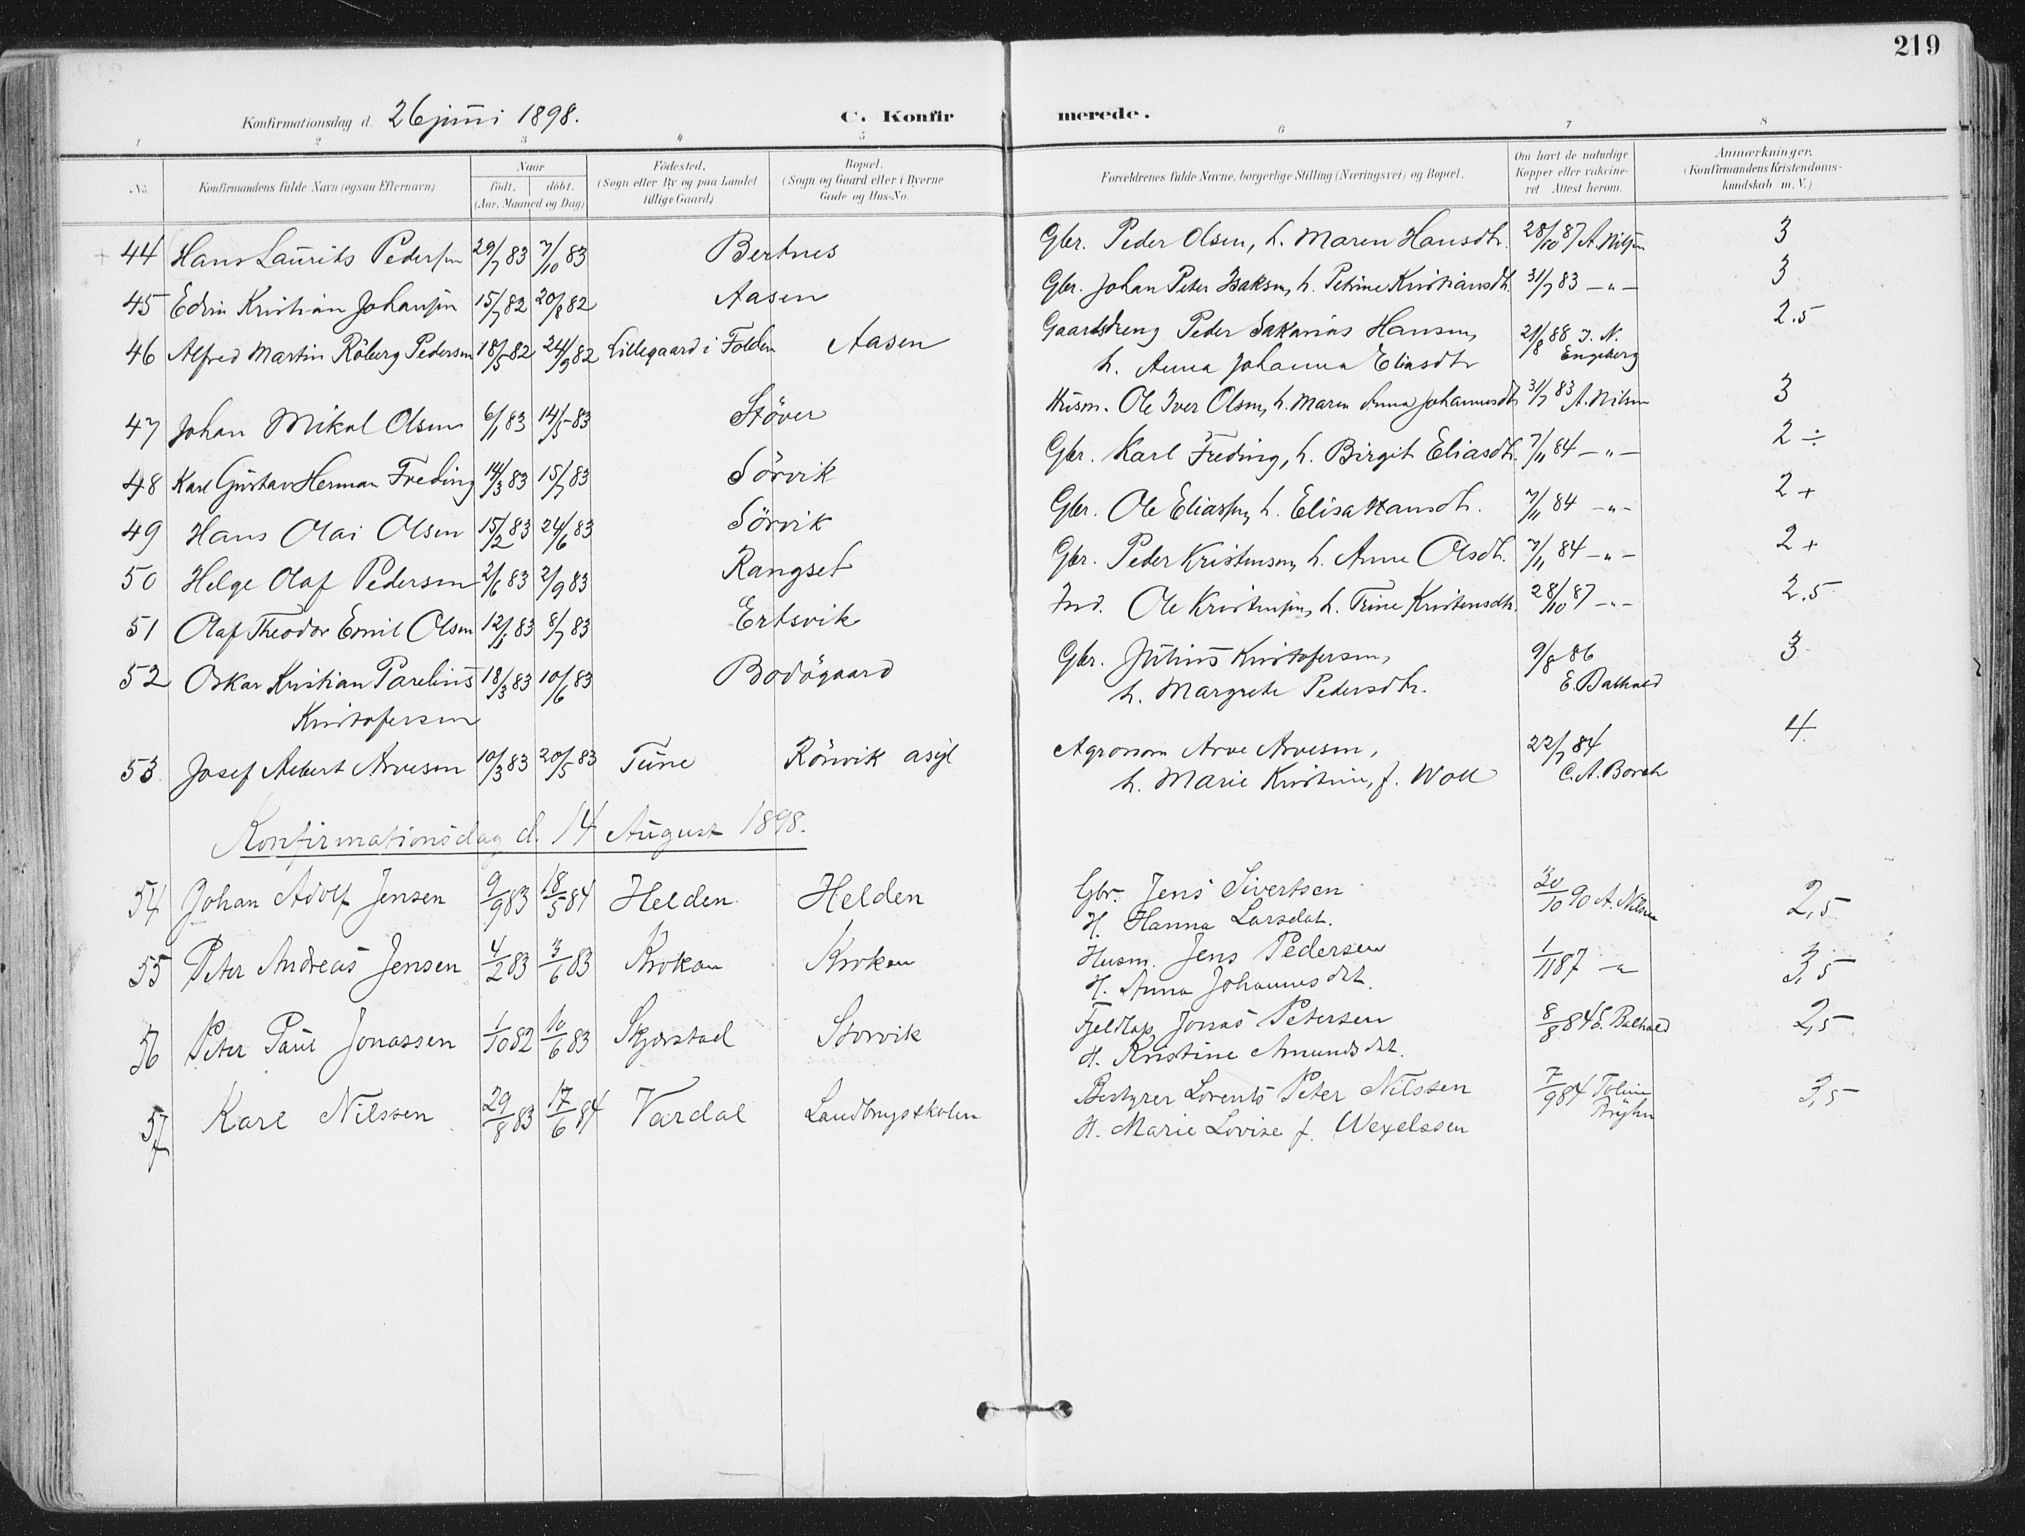 219
Konfirmationsdag d. 26 juni 1898. C. Konfirmerede.
1 2 3 4 5 6 7 8
No. Konfirmandens fulde Navn (ogsaa Efternavn) Naar født. døbt. (Aar, Maaned og Dag) Fødested. (Sogn eller By og paa Landet tillige Gaard) Bopæl. (Sogn og Gaard eller i Byerne Gade og Hus-No. Forældrenes fulde Navne, borgerlige Stilling (Næringsvei) og Bopæl. Om havt de naturlige Kopper eller vaccineret Attest herom. Anmærkninger. (Konfirmandens Kristendomskundskab m. V.)
44 Hans Laurits Pedersen 29/7 83 7/10 83 Bertnes Gbr. Peder Olsen, h. Maren Hansdtr. 28/10 87 A. Nilsen 3
45 Edvin Kristian Johansen 15/7 82 20/8 82 Aasen Gbr. Johan Peter Isaksen, h. Petrine Kristiansdtr. 31/7 83 -"- 3
46 Alfred Martin Röberg Pedersen 18/5 82 24/9 82 Lillegaard i Folden Aasen Gaardsdreng Peder Sakarias Hansen, 21/8 88 J. N. 2.5
h. Anna Johanna Eliasdtr Engeberg
47 Johan Mikal Olsen 6/1 83 14/5 83 Støver Husm. Ole Iver Olsen, h. Maren Anna Johannesdtr 31/7 83 A. Nilsen 3
48 Karl Gustav Herman Freding 14/3 83 15/7 83 Sörvik Gbr. Karl Freding, h. Birgit Eliasdtr. 7/11 84 -"- 2 ÷
49 Hans Olai Olsen 15/2 83 24/6 83 Sörvik Gbr. Ole Eliassen, h. Elisa Hansdtr. 7/11 84 -"- 2 +
50 Helge Olaf Pedersen 2/6 83 2/9 83 Rangset Gbr. Peder Kristensen, h. Anne Olsdtr. 7/11 84 -"- 2 +
51 Olaf Theodor Emil Olsen 12/1 83 8/7 83 Ertsvik Ind. Ole Kristensen, h. Trine Kristensdtr. 28/10 87 -"- 2.5
52 Oskar Kristian Parelius 18/3 83 10/6 83 Bodögaard Gbr. Julius Kristofersen, 9/8 86 3
Kristofersen h. Margrete Pedersdtr. E. Balhald
53 Josef Albert Arvesen 10/3 83 20/5 83 Tune Rönvik asyl Agronom Arve Arvesen, 22/7 84 4
h. Marie Kristine, f. Woll C. A. Borch
Konfirmationsdag d. 14 August 1898.
54 Johan Adolf Jensen 9/9 83 18/5 84 Helden Helden Gbr. Jens Sivertsen 30/10 90 A. Nilsen 2,5
H. Hanna Larsdat.
55 Peter Andreas Jensen 4/2 83 3/6 83 Kroken Kroken Husm. Jens Pedersen 1/11 87 -"- 3,5
H. Anna Johannesdat.
56 Peter Paul Jonassen 1/10 82 10/6 83 Skjerstad Storvik Fjeldlap Jonas Petersen 8/8 84 E. Balhald 2,5
H. Kristine Amundsdat.
57 Karl Nilssen 29/8 83 17/6 84 Vardal Landbrugsskolen Bestyrer Lorents Peter Nilssen 7/9 84 3,5
H. Marie Lovise f. Wexelssen